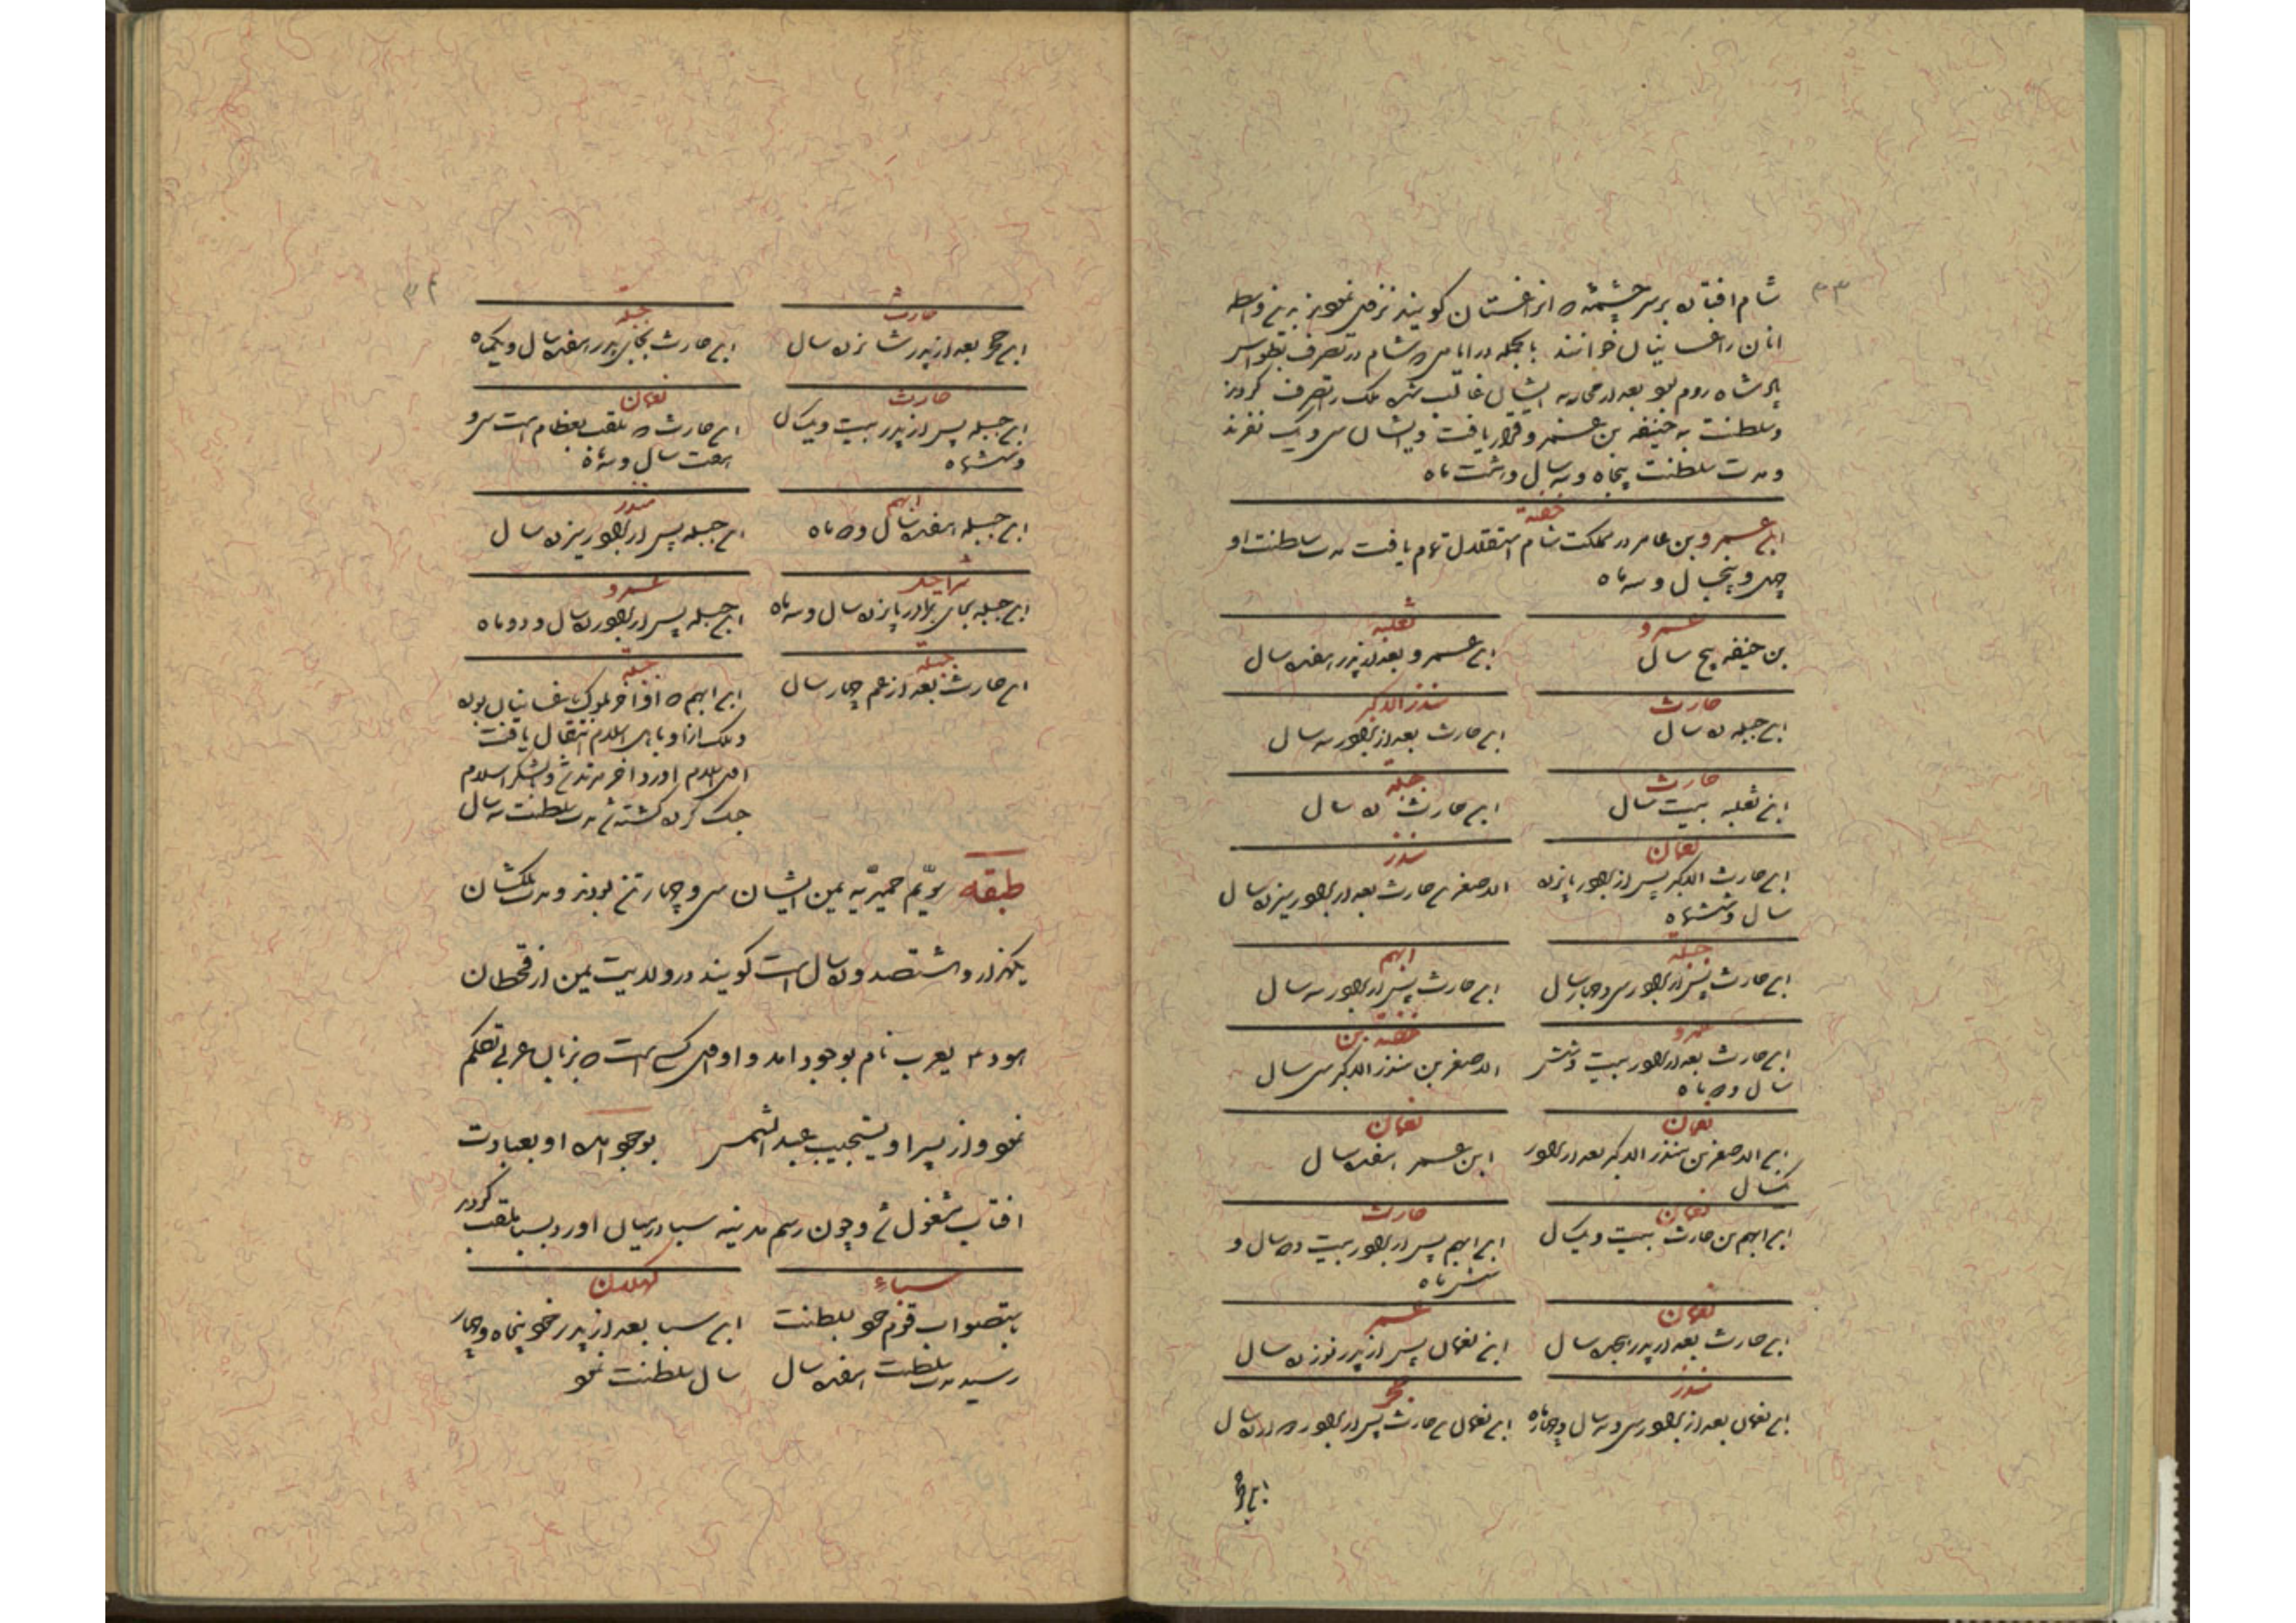 ۳۳
شام افتاده بر سر چشمهٔ که انرا غستان کویند نزول نمودند بدین واسطه
انان را غسانیان خوانند بالجمله در ایامی که شام در تصرف
پادشاه روم بود بعد از محاربه ایشان غالب شده ملک را تصرف کردند
و سلطنت به جفنه بن عمرو قرار یافت و ایشان سی و یک نفرند
و مدت سلطنت پنجاه و سه سال و هشت ماه
جفنه
ابن عمرو بن عامر در مملکت شام استقلال تمام یافت مدت سلطنت او
چهل و پنجسال و سه ماه
عمرو
بن جفنه پنج سال
ثعلبه
ابن عمرو بعد از پدر هفده سال
حارث
ابن جبله ده سال
منذر الاکبر
ابن حارث بعد از برادر سه سال
حارث
ابن ثعلبه بیست سال
جبله
ابن حارث ده سال
نعمان
ابن حارث الاکبر پس از برادر پانزده
سال و ششماه
منذر
الاصغر بن حارث بعد از برادر سیزده سال
جبله
ابن حارث پس از برادر سی و چهار سال
ایهم
ابن حارث پس از برادر سه سال
عمرو
ابن حارث بعد از برادر بیست و شش
سال و ده ماه
جفنه بن
الاصغر بن منذر الاکبر سی سال
نعمان
ابن الاصغر بن منذر الاکبر بعد از برادر
یکسال
نعمان
ابن عمرو هفده سال
نعمان
ابن ایهم بن حارث بیست و یکسال
حارث
ابن ایهم پس از برادر بیست و دو سال و
شش ماه
نعمان
ابن حارث بعد از پدر هجده سال
عمرو
ابن نعمان پس از پدر نوزده سال
منذر
ابن نعمان بعد از برادر سی و سه سال و چهار ماه
حجر
ابن نعمان بن حارث پس از برادر دوازده سال
ابن حجر
۳۴
حارث
ابن حجر بعد از پدر شانزده سال
جبله
ابن حارث بجای پدر هفده سال و یکماه
حارث
ابن جبله پس از پدر بیست و یکسال
و ششماه
نعمان
ابن حارث که ملقب بقطام است سی و
هفت سال و سه ماه
ایهم
ابن جبله هفده سال و ده ماه
منذر
ابن جبله پس از برادر سیزده سال
شراحیل
ابن جبله بجای برادر پانزده سال و سه ماه
عمرو
ابن جبله پس از برادر ده سال و دو ماه
جبله
ابن حارث بعد از عم چهار سال
جبله
ابن ایهم که او اخر ملوک غسانیان بوده
و ملک از او باهل اسلام انتقال یافت
اول اسلام اورد و اخر مرتد شد و لشکر اسلام
جنک کرده کشته شد مدت سلطنت سه سال
طبقه سویّم حمیریّه یمن ایشان سی و چهار تن بودند و مدت ملکشان
یکهزار و هشتصد و ده سال است کویند در ولایت یمن از قحطان
هود ع یعرب نام بوجود امد و او اول کسی است که بزبان عربی تکلم
نمود و از پسر او یشجیب عبد الشمس بوجود امده او بعبادت
افتاب مشغول شد و چون رسم مدینه سبا درمیان اورد بسبا ملقب کردید
سباء
بتصواب قوم خود بسلطنت
رسید مدت سلطنت هفده سال
کهلان
ابن سبا بعد از پدر خود پنجاه و چهار
سال سلطنت نمود